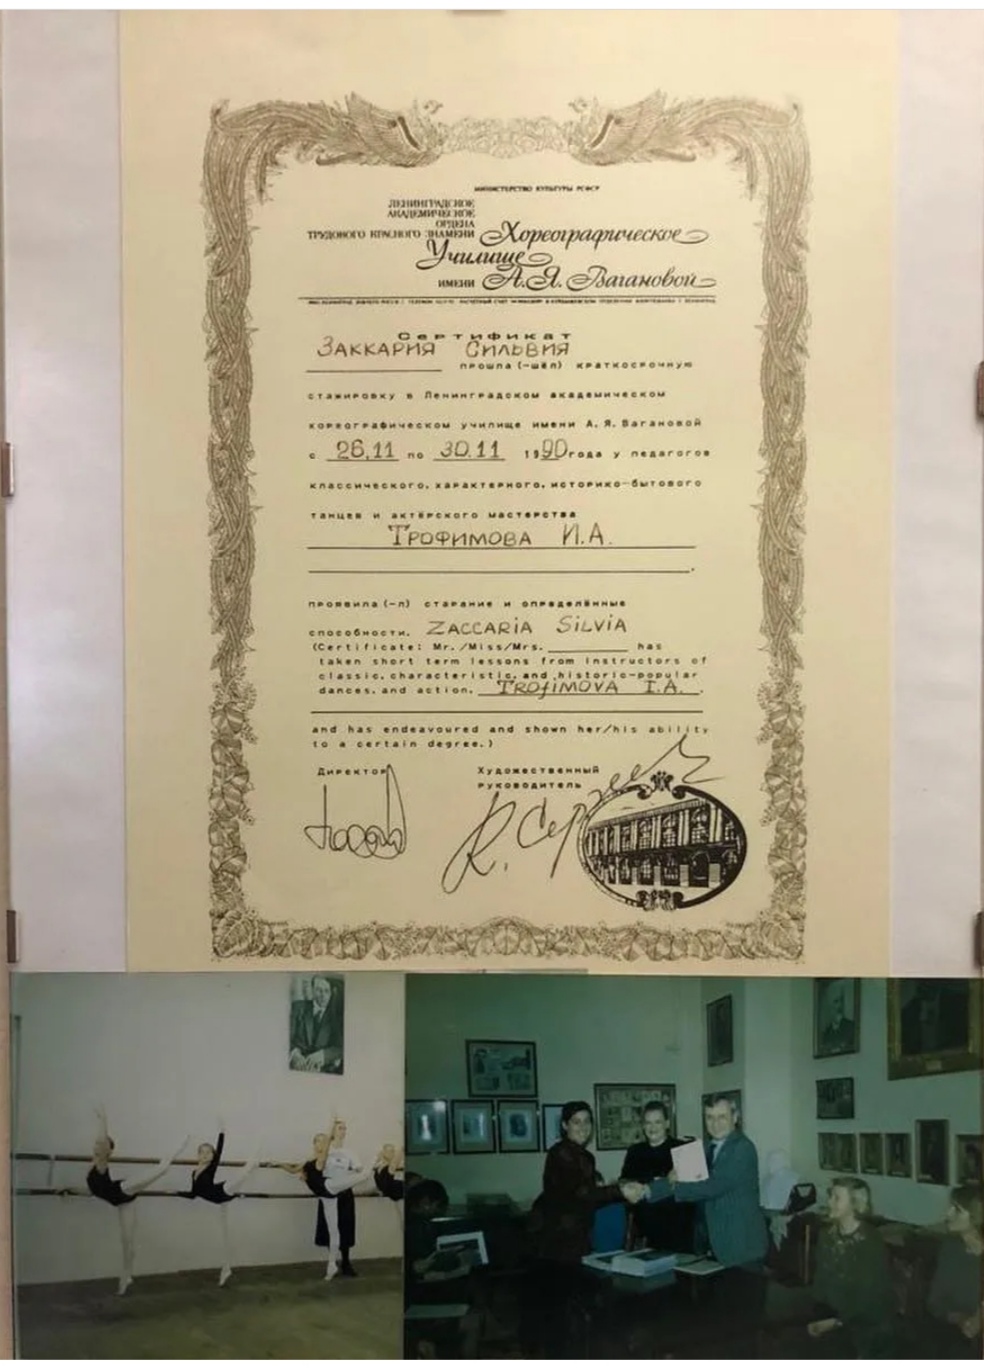 МИНИСТЕРСТВО КУЛЬТУРЫ РСФСР
ЛЕНИНГРАДСКОЕ
АКАДЕМИЧЕСКОЕ
ОРДЕНА
ТРУДОВОГО КРАСНОГО ЗНАМЕНИ Хореографическое
Училище
ИМЕНИ А.Я. Вагановой
Сертификат
ЗАККАРИЯ СИЛЬВИЯ
прошла (-шёл) краткосрочную
стажировку в Ленинградском академическом
хореографическом училище имени А.Я.Вагановой
с 26.11 по 30.11 1990 года у педагогов
классического, характерного, историко-бытового
танцев и актёрского мастерства
ТРОФИМОВА И.А.
проявила (-л) старание и определённые
способности. ZACCARIA SILVIA
(Certificate: Mr./Miss/Mrs. has
taken short term lessons from instructors of
classic, characteristic, and historic-popular
dances, and action. TROfIMOVA I.A.
and has endeavoured and shown her/his ability
to a certain degree.)
Директор Художественный
руководитель